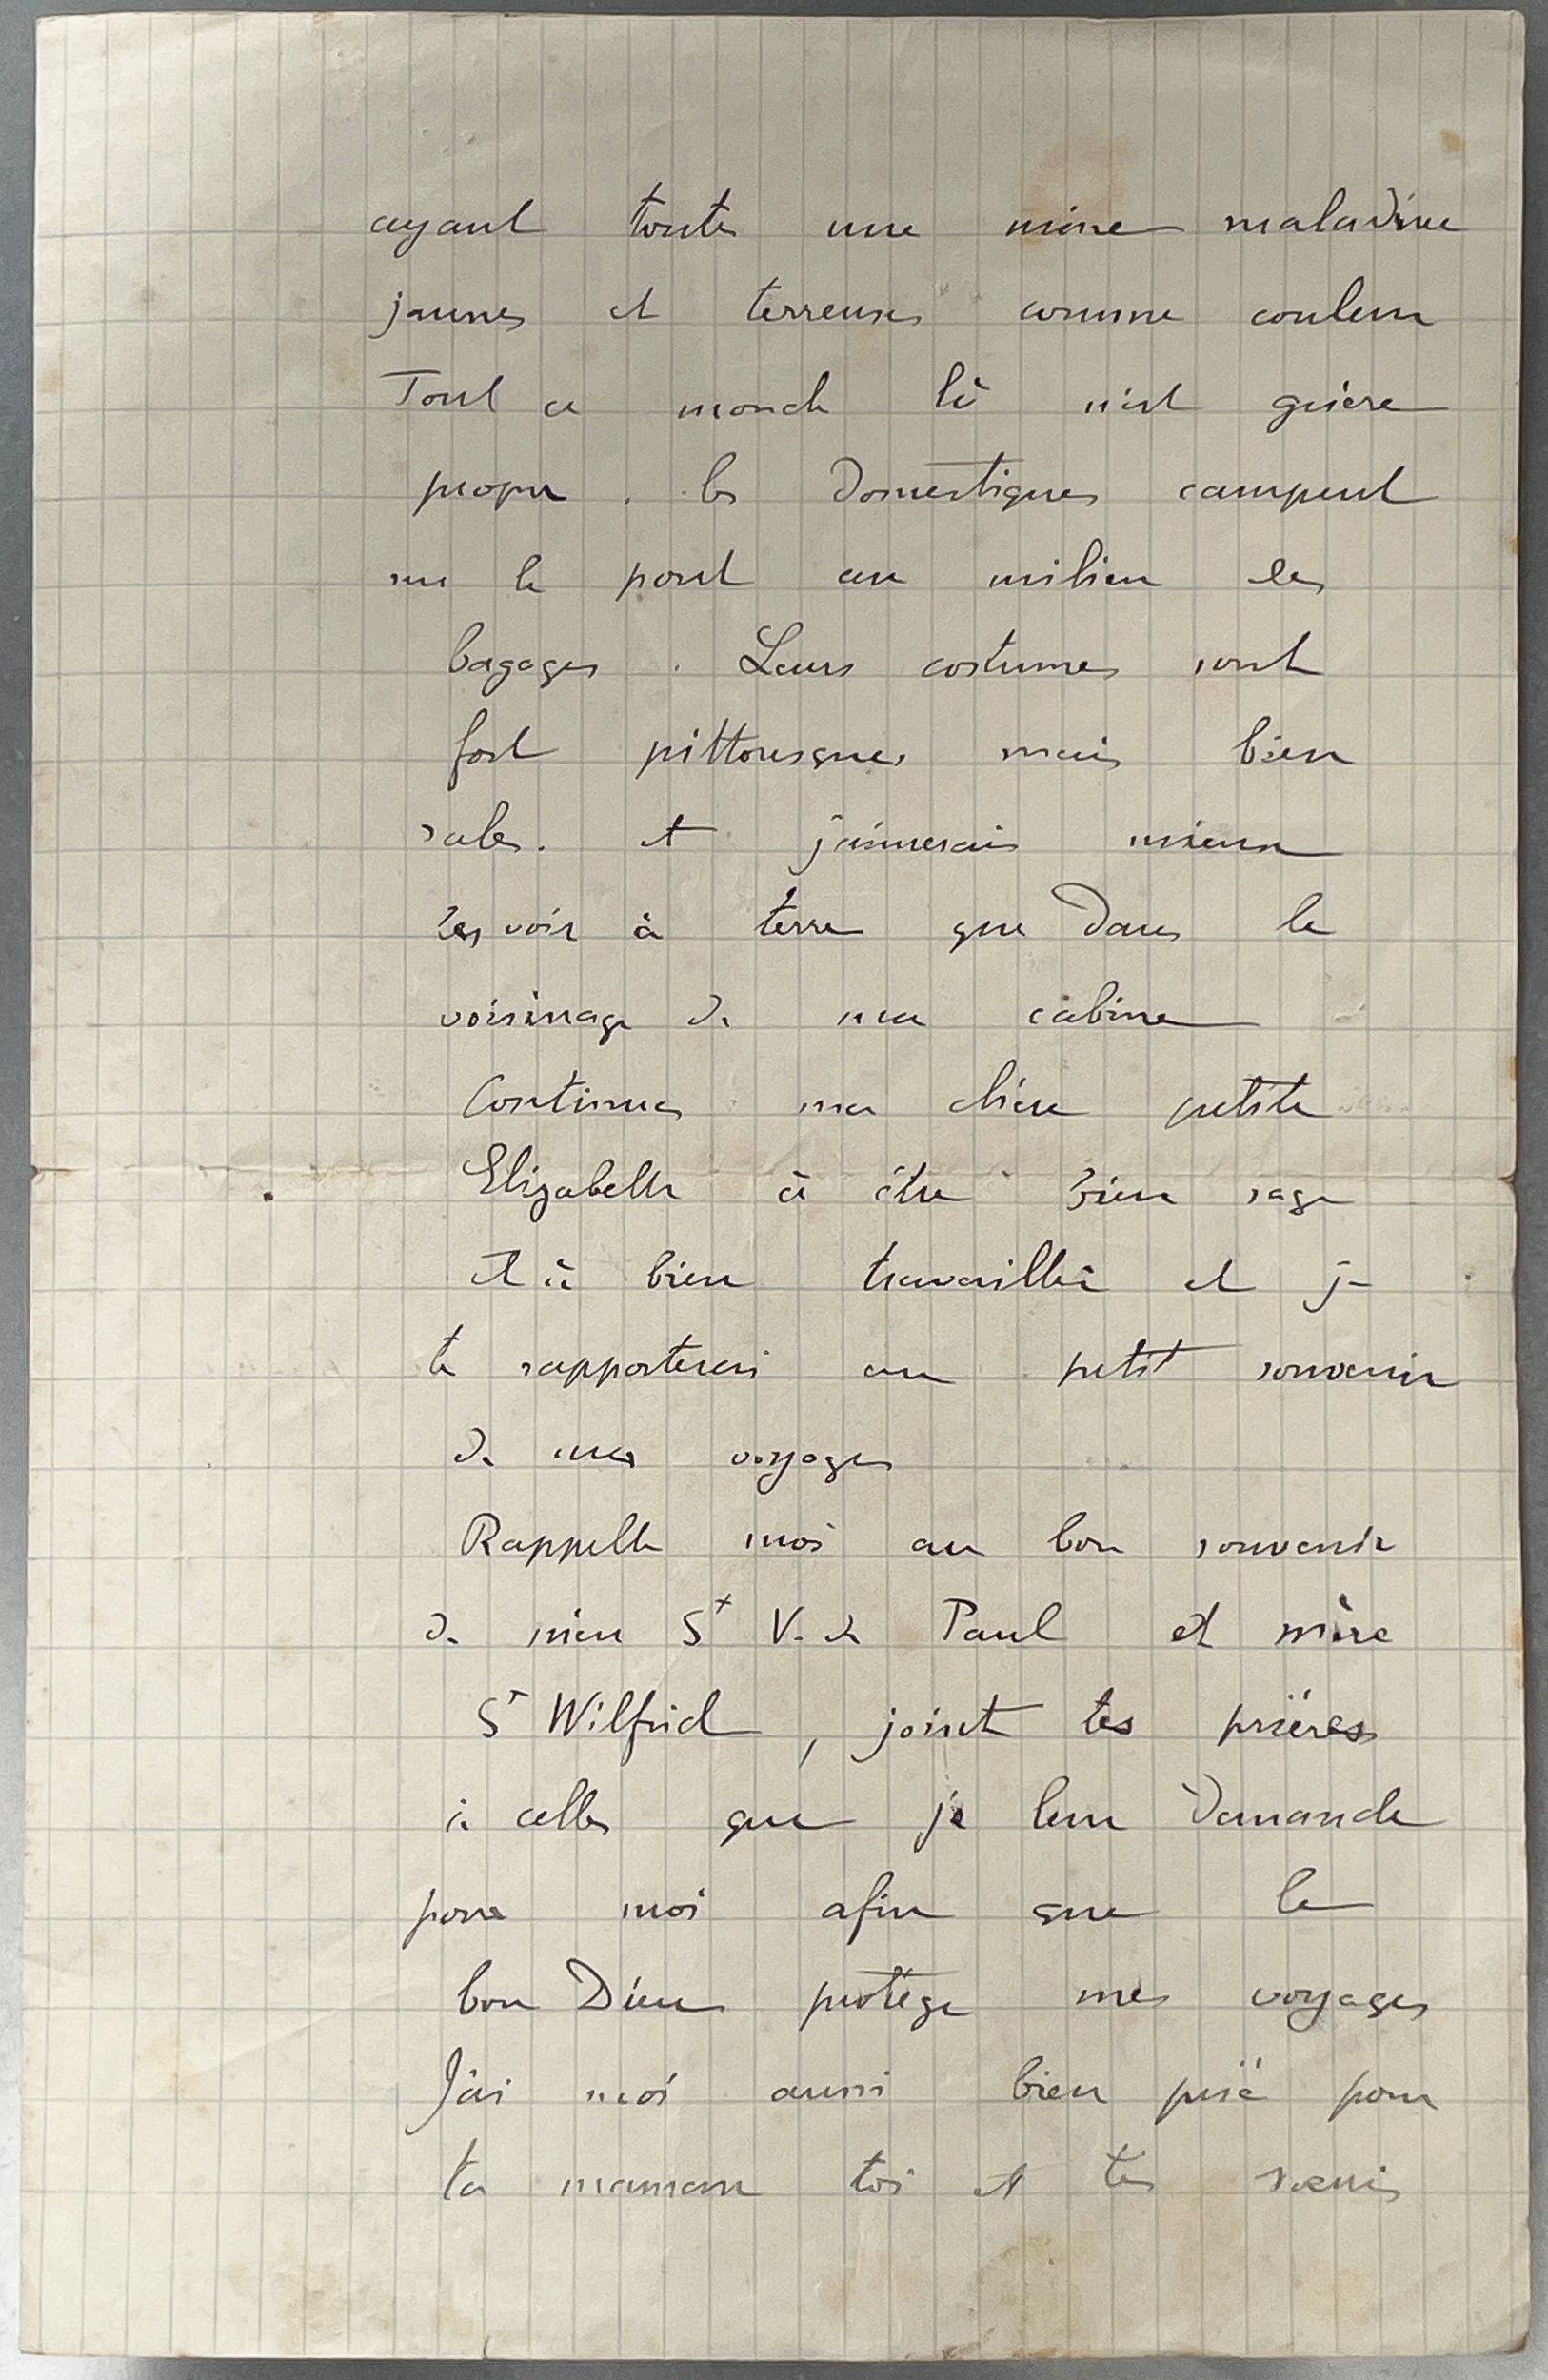 ayant toutes une mine maladive
jaunes et terreuses comme couleur
Tout ce monde là n'est guère
propre . les domestiques campent
sur le pont au milieu des
bagages . Leurs costumes sont
fort pittoresques mais bien
sales. et j'aimerais mieux
les voir à terre que dans le
voisinage de ma cabine
Continues ma chère petite
Elizabeth à être bien sage
et à bien travailler et je
te rapporterai un petit souvenir
de mes voyages
Rappelle moi au bon souvenir
de mère St V. de Paul et mère
St Wilfrid , joint tes prières
à celles que je leur demande
pour moi afin que le
bon Dieu protège mes voyages
J'ai moi aussi bien prié pour
ta maman toi et tes soeurs